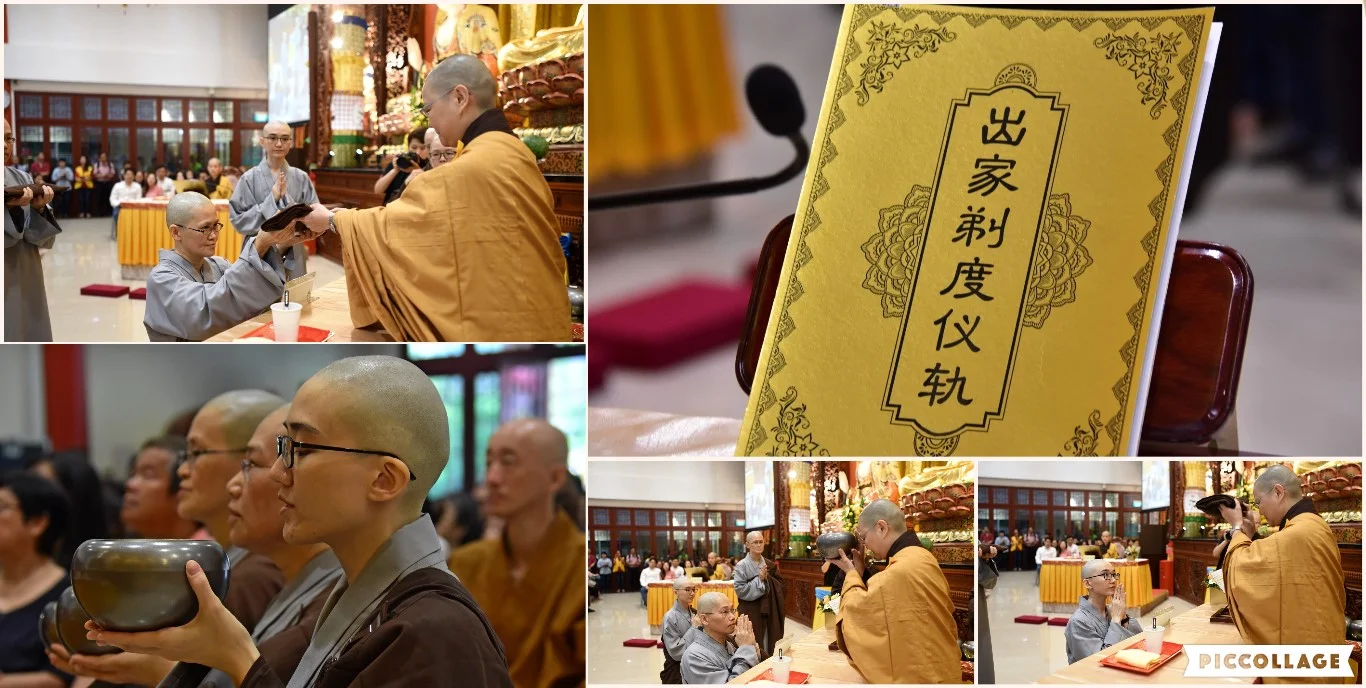 出家剃度仪轨
PICCOLLAGE